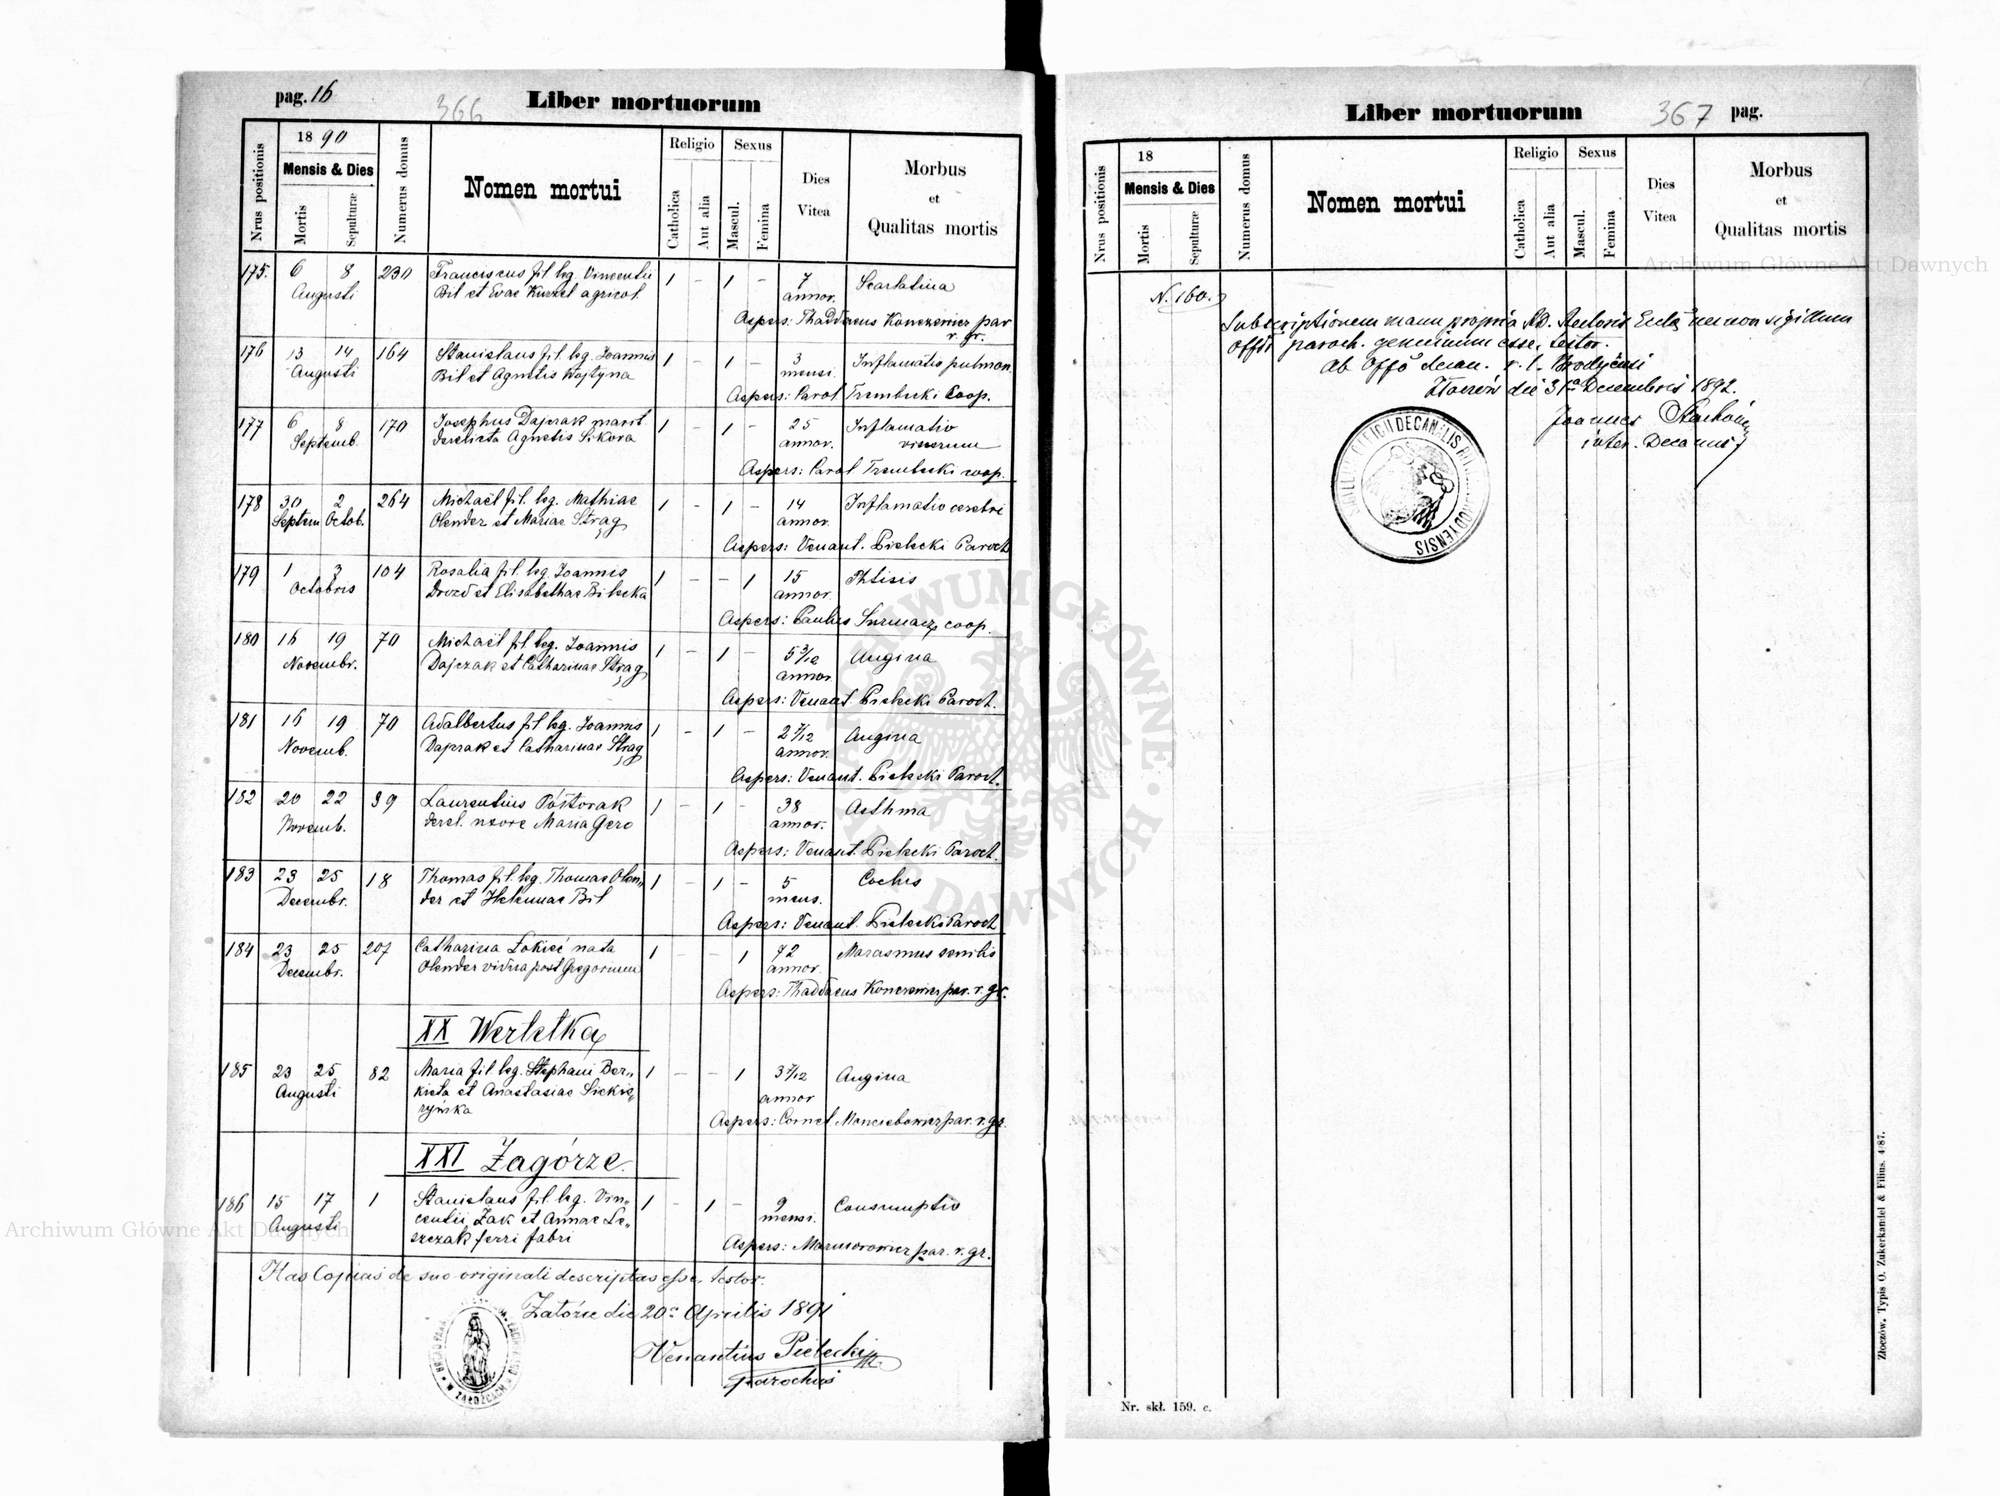 pag. 16
366
Liber mortuorum
Nrus positionis
1890
Mensis & Dies
Mortis
Sepulturæ
Numerus domus
Nomen mortui
Religio
Catholica
Aut alia
Sexus
Mascul.
Femina
Dies
Vitea
Morbus
et
Qualitas mortis
175. 6 8 230 Franciscus fil. leg. Vincentii 1 – 1 – 7 Scarlatina
Augusti Bil et Evae Kurzel agricol. annor.
Aspers: Thaddaeus Konczewicz par
r. gr.
176 13 14 164 Stanislaus fil. leg. Joannis 1 1 – 3 Inflamatio pulmon.
Augusti Bil et Agnetis Wojtyna mensi.
Aspers: Carol Trembecki Coop.
177 6 8 170 Josephus Dajczak marit. 1 – 1 – 25 Inflamatio
Septemb. derelicta Agnetis Sikora annor. viscerum
Aspers: Carol Trembecki coop.
178 30 2 264 Michaël fil. leg. Mathiae 1 – 1 – 14 Inflamatio cerebri
Septem Octob. Olender et Mariae Strag annor.
Aspers: Venant. Pielecki Paroch
179 1 3 104 Rosalia fil. leg. Joannis 1 – – 1 15 Phtisis
Octobris Drozd et Elisabethae Bilecka annor.
Aspers: Paulus Surmacz coop.
180 16 19 70 Michaël fil. leg. Joannis 1 – 1 – 5 3/12 Angina
Novembr. Dajczak et Catharinae Strag annor.
Aspers: Venant. Pielecki Paroch.
181 16 19 70 Adalbertus fil. leg. Joannis 1 – 1 – 2 7/12 Angina
Novemb. Dajczak et Catharinae Strag annor.
Aspers: Venant. Pielecki Paroch.
182 20 22 39 Laurentius Póśtorak 1 – 1 – 38 Asthma
Novemb. derel. uxore Maria Gero annor.
Aspers: Venant. Pielecki Paroch.
183 23 25 18 Thomas fil. leg. Thomae Olen„ 1 – 1 – 5
Decembr. der et Helenae Bil mens.
Aspers: Venant. Pielecki Paroch
184 23 25 207 Catharina Łokieć nata 1 – – 1 72 Marasmus senilis
Decembr. Olender vidua post Gregorium annor.
Aspers: Thaddaeus Konczewicz par. r. gr.
XX Wertelka
185 23 25 82 Maria fil. leg. Stephani Ber„ 1 – – 1 3 7/12 Angina
Augusti kieta et Anastasiae Siekie„ annor
rzyńska
Aspers: Cornel. par. r. gr.
XXI Zagórze.
186 15 17 1 Stanislaus fil. leg. Vin„ 1 – 1 – 9 Consumptio
Augusti centii Żak et Annae Le„ mensi.
szczak ferri fabri
Aspers: Marmorowicz par. r. gr.
Has Copias de suo originali descriptas esse, testor.
Załośce die 20a Aprilis 1891
Venantius Pielecki
Parochus
W ZAŁOŹCACH
Liber mortuorum
367
pag.
Nrus positionis
18
Mensis & Dies
Mortis
Sepulturæ
Numerus domus
Nomen mortui
Religio
Catholica
Aut alia
Sexus
Mascul.
Femina
Dies
Vitea
Morbus
et
Qualitas mortis
N. 160.
Subscriptionem manu propria AD. Rectoris Eccle necnon sigillum
Offii paroch. genuinum esse, testor.
Ab Offo decan. r. l. Brodyensi
Złoczów die 31a Decembris 1892.
Joannes
inter. Decanus
SIGILLUM OFFICII DECANALIS
Nr. skł. 159. c.
Złoczów. Typis O. Zukerkandel & Filius. 4/87.
Archiwum Główne Akt Dawnych
Archiwum Główne Akt Dawnych
ARCHIWUM GŁÓWNE AKT DAWNYCH